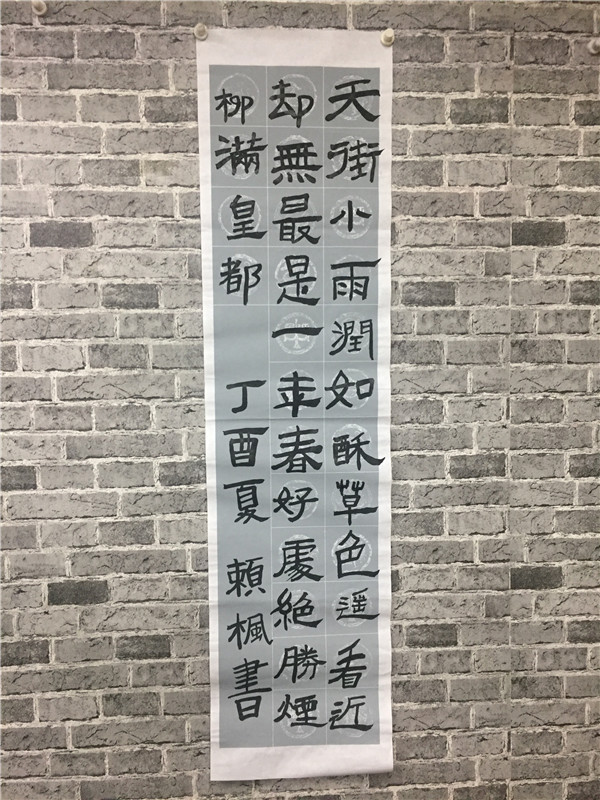 天街小雨潤如酥草色遥看近
却無最是一年春好處絶勝煙
柳滿皇都 丁酉夏 賴楓書